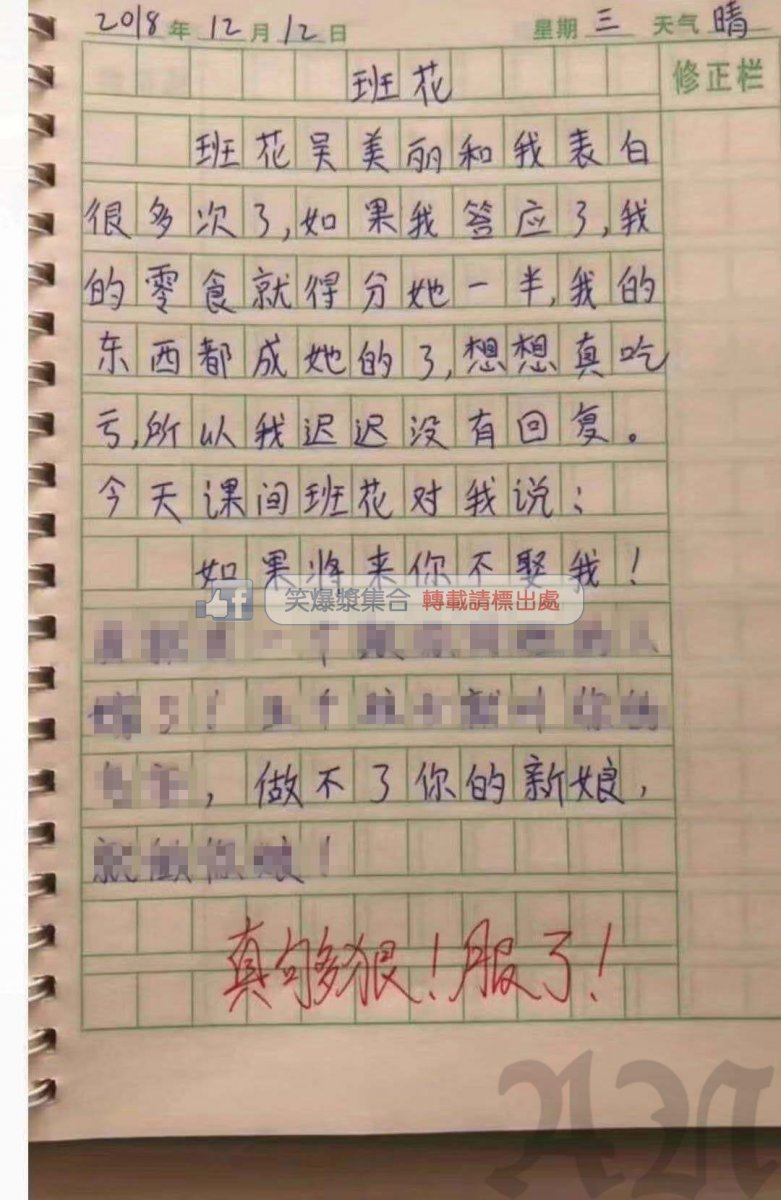 2018年12月12日 星期三 天气晴
班花
修正栏
班花吴美丽和我表白
很多次了,如果我答应了,我
的零食就得分她一半,我的
东西都成她的了,想想真吃
亏,所以我迟迟没有回复。
今天课间班花对我说:
如果将来你不娶我!
笑爆漿集合 轉載請標出處
,做不了你的新娘,
真够狠!服了!
AN